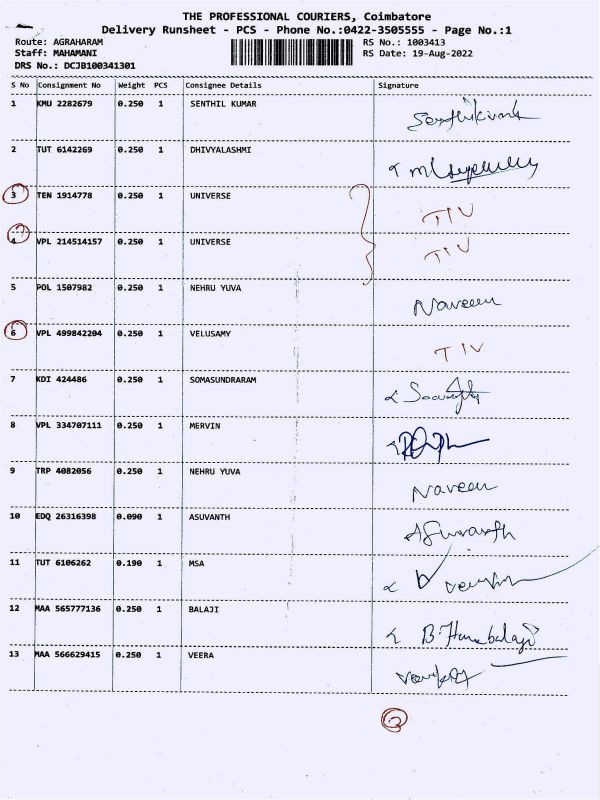 THE PROFESSIONAL COURIERS, Coimbatore
Delivery Runsheet - PCS - Phone No.:0422-3505555 - Page No.:1
Route: AGRAHARAM RS No.: 1003413
Staff: MAHAMANI RS Date: 19-Aug-2022
DRS No.: DCJB100341301
S No Consignment No Weight PCS Consignee Details Signature
1 KMU 2282679 0.250 1 SENTHIL KUMAR
2 TUT 6142269 0.250 1 DHIVYALASHMI
3 TEN 1914778 0.250 1 UNIVERSE TIV
4 VPL 214514157 0.250 1 UNIVERSE TIV
5 POL 1507982 0.250 1 NEHRU YUVA Naveen
6 VPL 499842204 0.250 1 VELUSAMY TIV
7 KDI 424486 0.250 1 SOMASUNDRARAM
8 VPL 334707111 0.250 1 MERVIN
9 TRP 4082056 0.250 1 NEHRU YUVA Naveen
10 EDQ 26316398 0.090 1 ASUVANTH
11 TUT 6106262 0.190 1 MSA
12 MAA 565777136 0.250 1 BALAJI
13 MAA 566629415 0.250 1 VEERA